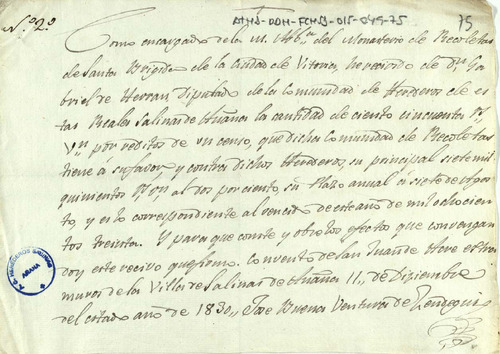 ATHJ-DDM-FCHSJ-015-049-75
75
N.º 2º
Como encargado de la M. Abb.ª del Monasterio de Recoletas
de Santa Brigida de la Ciudad de Vitoria, he recivido de D.n Ga
briel de Herran, Diputado de la Comunidad de Herederos de es
tas Reales Salinas de Añana la cantidad de ciento cincuenta r.s
v.n por reditos de un censo, que dicha Comunidad de Recoletas
tiene á su favor, y contra dichos Herederos, su principal siete mil
quinientos r.s v.n al dos por ciento, su Plazo anual á siete de Agos
to, y es lo correspondiente al vencido de este año de mil ochocien
tos treinta. Y para que conste y obre los efectos que convengan
doy este recivo que firmo. Convento de San Juan de Acre extra
muros de la Villa de Salinas de Añana 11,, de Diziembre
del citado año de 1830,, Jose Buena Ventura de
HEREDEROS SALINAS
AÑANA